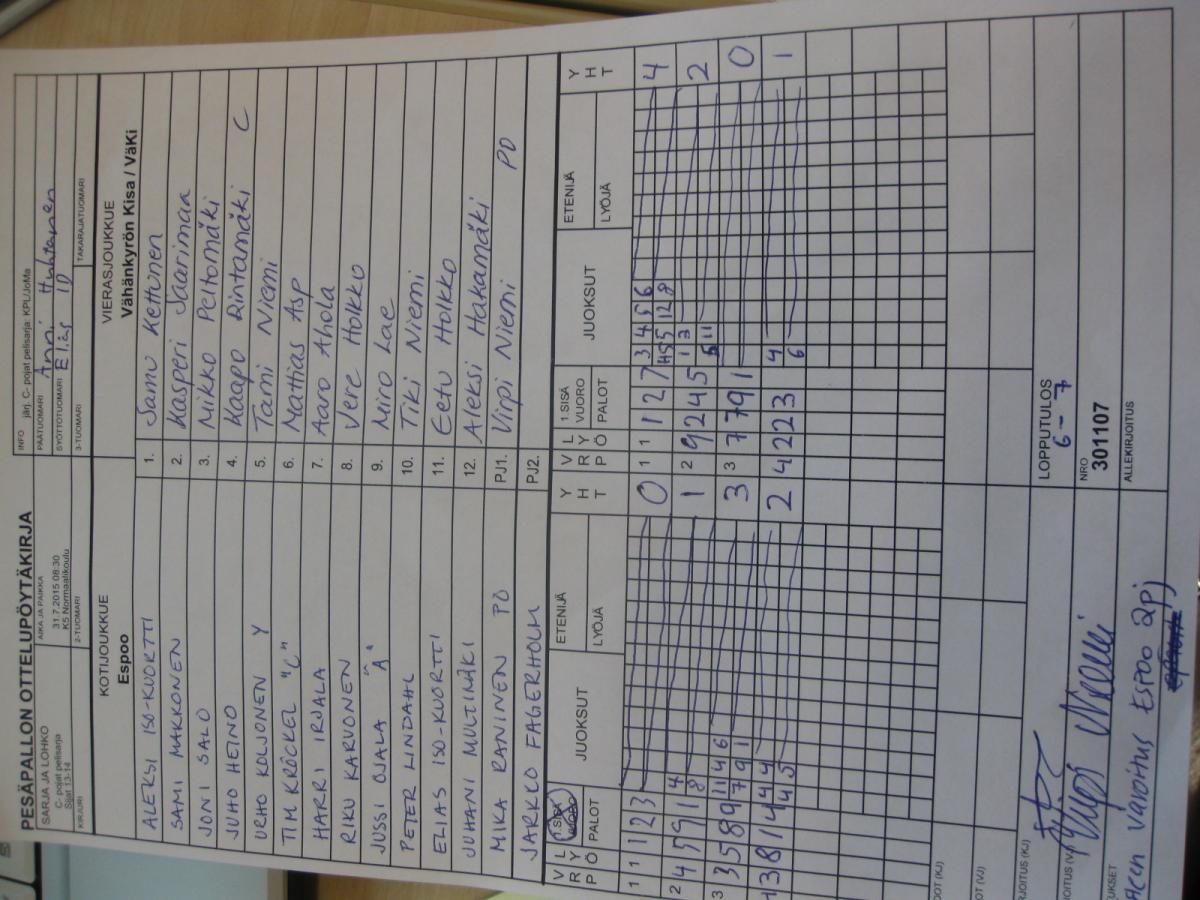 PESÄPALLON OTTELUPÖYTÄKIRJA
SARJA JA LOHKO
C- pojat pelisarja
Sijat 13-14
AIKA JA PAIKKA
31.7.2015 08:30
K5 Normaalikoulu
INFO järj. C- pojat pelisarja: KPUJoMa
PÄÄTUOMARI Anni Huhtanen
SYÖTTÖTUOMARI
KIRJURI
2-TUOMARI
3-TUOMARI
TAKARAJATUOMARI
KOTIJOUKKUE
Espoo
VIERASJOUKKUE
Vähänkyrön Kisa / VäKi
ALEKSI ISO-KUORTTI
1. Samu Kettunen
SAMI MAKKONEN
2. Kasperi Saarimaa
JONI SALO
3. Mikko Peltomäki
JUHO HEINO
4. Kaapo Rintamäki C
URHO KOLJONEN Y
5. Tami Niemi
TIM KRÖCKEL "C"
6. Mattias Asp
HARRI IRJALA
7. Aaro Ahola
RIKU KARVONEN
8. Vere Holkko
JUSSI OJALA "A"
9. Miro Lae
PETER LINDAHL
10. Tiki Niemi
ELIAS ISO-KUORTTI
11. Eetu Holkko
JUHANI MULTIMÄKI
12. Aleksi Hakamäki
MIKA RANINEN PD
PJ1. Virpi Niemi PD
JARKKO FAGERHOLM
PJ2.
V R L Y P Ö
1 SISÄ VUORO
PALOT
JUOKSUT
ETENIJÄ
LYÖJÄ
Y H T
V R L Y P Ö
1 SISÄ VUORO
PALOT
JUOKSUT
ETENIJÄ
LYÖJÄ
Y H T
1 1 1 2 3 0
1 1 1 2 7 3 4 5 6 4
2 4 5 9 4 8 1
2 9 2 4 5 2
3 3 5 8 9 3
3 7 7 9 1 0
3 8 1 4 4 4 2
4 2 2 3 4 6 1
LOPPUTULOS
6 - 7
NRO
301107
ALLEKIRJOITUS
varoitus Espoo 2pj